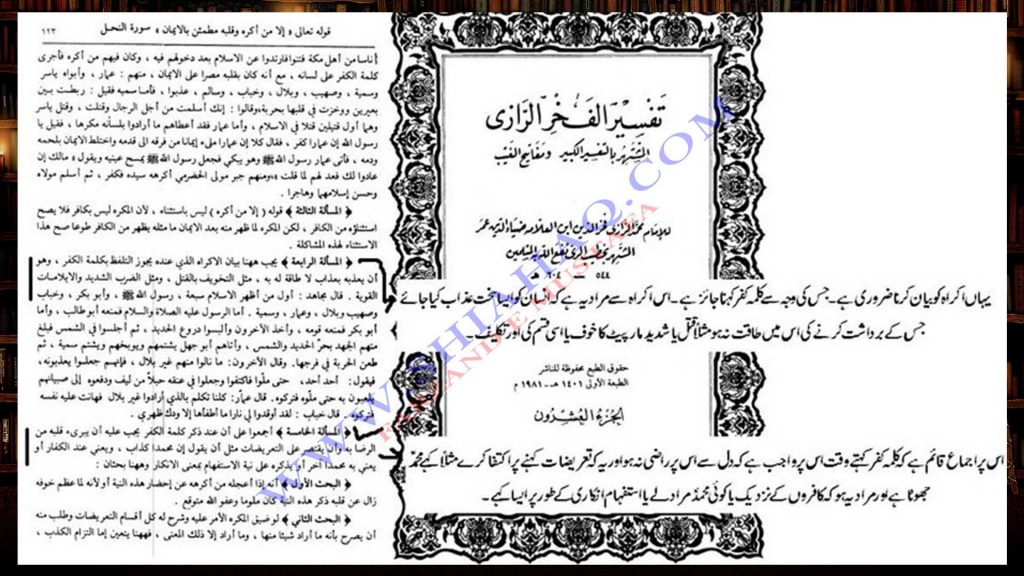 قوله تعالى « إلا من أكره وقلبه مطمئن بالايمان » سورة النحل
١٢٣
أناسا من أهل مكة فتنوا فارتدوا عن الاسلام بعد دخولهم فيه ، وكان فيهم من أكره فأجرى
كلمة الكفر على لسانه ، مع أنه كان بقلبه مصرا على الايمان ، منهم : عمار ، وأبواه ياسر
وسمية ، وصهيب ، وبلال ، وخباب ، وسالم ، عذبوا ، فأما سمية فقيل : ربطت بين
بعيرين ووخزت في قلبها بحربة وقالوا : إنك أسلمت من أجل الرجال وقتلت ، وقتل ياسر
وهما أول قتيلين قتلا في الاسلام ، وأما عمار فقد أعطاهم ما أرادوا بلسانه مكرها ، فقيل يا
رسول الله إن عمارا كفر ، فقال كلا إن عمارا ملىء إيمانا من فرقه الى قدمه واختلط الايمان بلحمه
ودمه ، فأتى عمار رسول الله ﷺ وهو يبكي فجعل رسول الله ﷺ يمسح عينيه ويقول « مالك إن
عادوا لك فعد لهم لما قلت » ومنهم جبر مولى الحضرمي أكرهه سيده فكفر ، ثم أسلم مولاه
وحسن إسلامهما وهاجرا .
﴿ المسألة الثالثة ﴾ قوله ( إلا من أكره ) ليس باستثناء ، لأن المكره ليس بكافر فلا يصح
استثناؤه من الكافر ، لكن المكره لما ظهر منه بعد الايمان ما مثله يظهر من الكافر طوعا صح هذا
الاستثناء لهذه المشاكلة .
﴿ المسألة الرابعة ﴾ يجب ههنا بيان الاكراه الذي عنده يجوز التلفظ بكلمة الكفر ، وهو
أن يعذبه بعذاب لا طاقة له به ، مثل التخويف بالقتل ، ومثل الضرب الشديد والايلامات
القوية . قال مجاهد : أول من أظهر الاسلام سبعة ، رسول الله ﷺ ، وأبو بكر ، وخباب
وصهيب وبلال ، وعمار ، وسمية . أما الرسول عليه الصلاة والسلام فمنعه أبو طالب ، وأما
أبو بكر فمنعه قومه ، وأخذ الآخرون وألبسوا دروع الحديد ، ثم أجلسوا في الشمس فبلغ
منهم الجهد بحر الحديد والشمس ، وأتاهم أبو جهل يشتمهم ويوبخهم ويشتم سمية ، ثم
طعن الحربة في فرجها. وقال الآخرون : ما نالوا منهم غير بلال ، فإنهم جعلوا يعذبونه ،
فيقول: أحد أحد، حتى ملوا فاكتفوا وجعلوا في عنقه حبلاً من ليف ودفعوه إلى صبيانهم
يلعبون به حتى ملوه فتركوه . قال عمار: كلنا تكلم بالذي أرادوا غير بلال فهانت عليه نفسه
فتركوه . قال خباب : لقد أوقدوا لي نارا ما أطفأها إلا ودك ظهري .
﴿ المسألة الخامسة ﴾ أجمعوا على أن عند ذكر كلمة الكفر يجب عليه أن يبرىء قلبه من
الرضا به وأن يقتصر على التعريضات مثل أن يقول إن محمدا كذاب ، ويعني عند الكفار أو
يعني به محمدا آخر أو يذكره على نية الاستفهام بمعنى الانكار وههنا بحثان :
﴿ البحث الأول ﴾ أنه إذا أعجله من أكرهه عن إحضار هذه النية أو لأنه لما عظم خوفه
زال عن قلبه ذكر هذه النية كان ملوما وعفو الله متوقع .
﴿ البحث الثاني ﴾ لو ضيق المكره الأمر عليه وشرح له كل أقسام التعريضات وطلب منه
أن يصرح بأنه ما أراد شيئا منها ، وما أراد إلا ذلك المعنى ، فههنا يتعين إما التزام الكذب ،
تفسير الفخر الرازى
المشتهر بالتفسير الكبير ومفاتيح الغيب
للإمام محمد الرازى فخر الدين ابن العلامه ضياء الدين عمر
المشتهر بخطيب الرى نفع الله به المسلمين
٥٤٤ — ٦٠٤ هـ
یہاں اکراہ کو بیان کرنا ضروری ہے۔ جس کی وجہ سے کلمہ کفر کہنا جائز ہے۔ اس اکراہ سے مراد یہ ہے کہ انسان کو ایسا سخت عذاب کیا جائے
جس کے برداشت کرنے کی اس میں طاقت نہ ہو مثلاً قتل یا شدید مار پیٹ کا خوف یا اسی قسم کی اور تکلیف
حقوق الطبع محفوظة للناشر
الطبعة الأولى ١٤٠١ هـ - ١٩٨١ م
الجزء العشرون
اس پر اجماع قائم ہے کہ کلمہ کفر کہتے وقت اس پر واجب ہے کہ دل سے اس پر راضی نہ ہو اور یہ کہ تعریضات کہنے پر اکتفا کرے مثلاً کہے محمدؐ
جھوٹا ہے اور مراد یہ ہو کہ کافروں کے نزدیک یا کوئی محمد مراد لے یا استفہام انکاری کے طور پر ایسا کہے۔
WWW.SHIAHAQ.COM